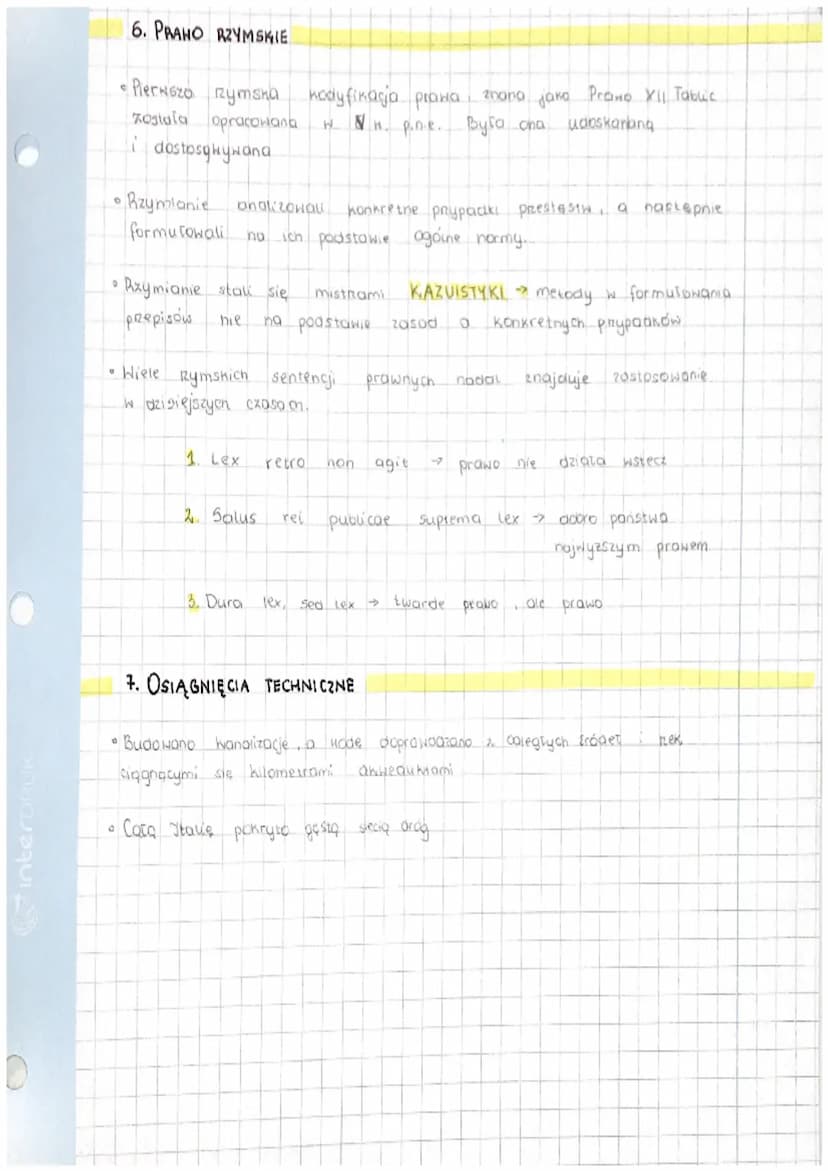 6. PRAWO RZYMSKIE
• Pierwsza rzymska kodyfikacja prawa, znana jako Prawo XII Tablic
została opracowana w V w. p.n.e. Była ona udoskanlaną
i dostosowywana
• Rzymianie analizowali konkretne przypadki przestęstw, a następnie
formułowali na ich podstawie ogólne normy.
• Rzymianie stali się mistrzami KAZUISTYKI → metody w formułowania
przepisów nie na podstawie zasad a konkretnych przypadków
• Wiele rzymskich sentencji prawnych nadal znajduje zastosowanie
w dzisiejszych czasach.
1. Lex retro non agit → prawo nie działa wstecz
2. Salus rei publicae suprema lex → dobro państwa
najwyższym prawem
3. Dura lex, sed lex → twarde prawo, ale prawo
7. OSIĄGNIĘCIA TECHNICZNE
• Budowano kanalizacje, a wodę doprowadzano z odległych źródeł i rzek
ciągnącymi się kilometrami akweduktami
• Całą Italię pokryto gęstą siecią dróg
interdruk